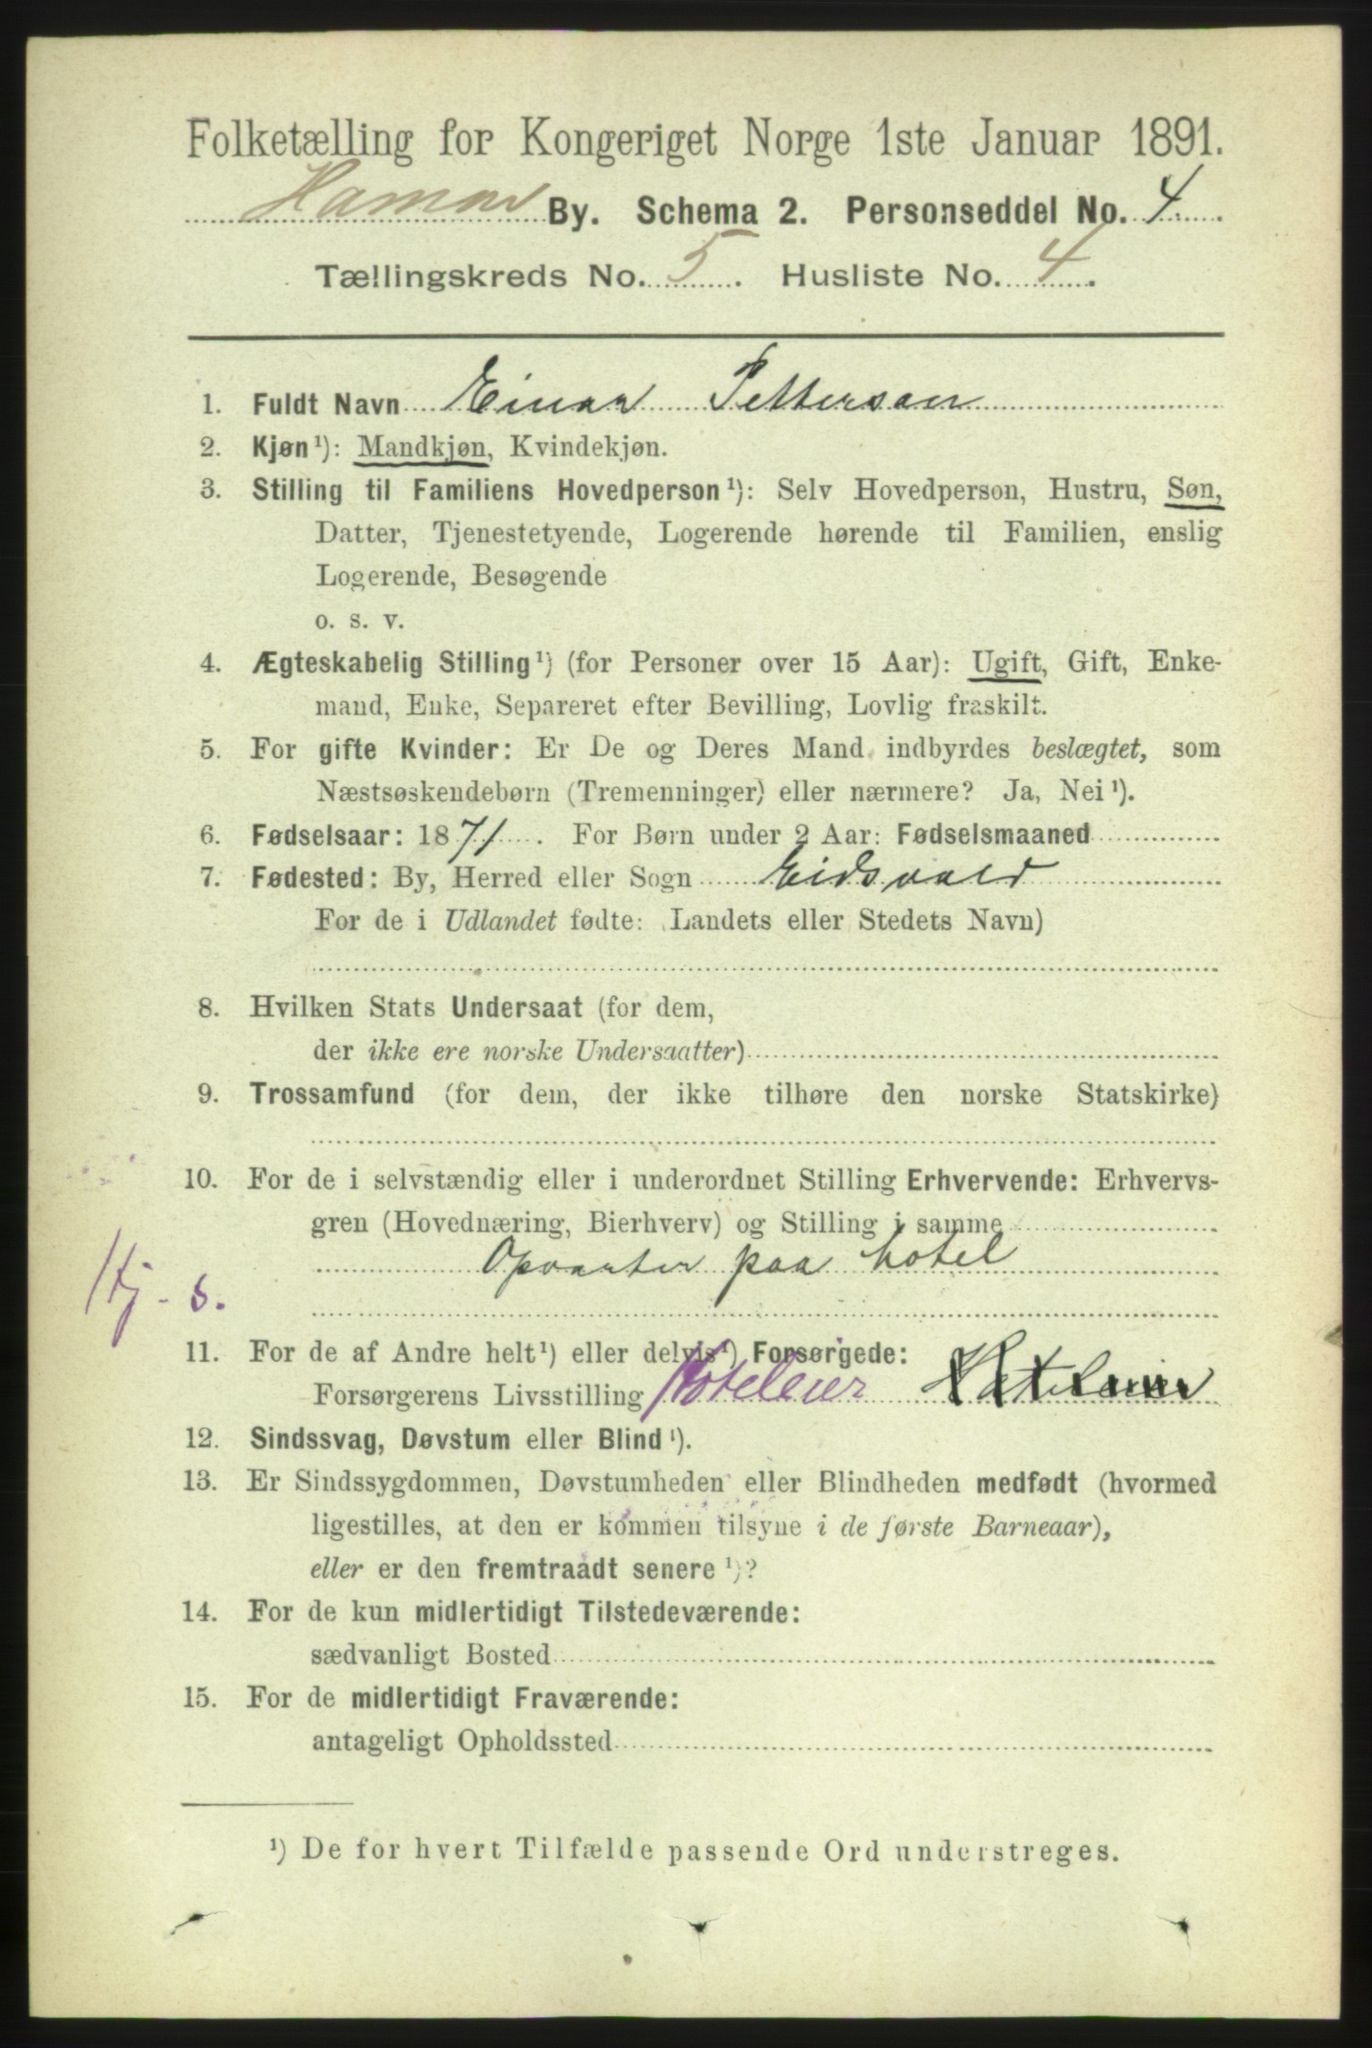 Folketælling for Kongeriget Norge 1ste Januar 1891.
Hamar By. Schema 2. Personseddel No. 4
Tællingskreds No. 5. Husliste No. 4.
1. Fuldt Navn Einar Pettersen
2. Kjøn ¹): Mandkjøn, Kvindekjøn.
3. Stilling til Familiens Hovedperson ¹): Selv Hovedperson, Hustru, Søn,
Datter, Tjenestetyende, Logerende hørende til Familien, enslig
Logerende, Besøgende
o. s. v.
4. Ægteskabelig Stilling ¹) (for Personer over 15 Aar): Ugift, Gift, Enke-
mand, Enke, Separeret efter Bevilling, Lovlig fraskilt.
5. For gifte Kvinder: Er De og Deres Mand indbyrdes beslægtet, som
Næstsøskendebørn (Tremenninger) eller nærmere? Ja, Nei ¹).
6. Fødselsaar: 1871. For Børn under 2 Aar: Fødselsmaaned
7. Fødested: By, Herred eller Sogn Eidsvold
For de i Udlandet fødte: Landets eller Stedets Navn)
8. Hvilken Stats Undersaat (for dem,
der ikke ere norske Undersaatter)
9. Trossamfund (for dem, der ikke tilhøre den norske Statskirke)
10. For de i selvstændig eller i underordnet Stilling Erhvervende: Erhvervs-
gren (Hovednæring, Bierhverv) og Stilling i samme
Opvarter paa hotel
Hj - s.
11. For de af Andre helt ¹) eller delvis ¹) Forsørgede:
Forsørgerens Livsstilling Hoteleier Hoteleier
12. Sindssvag, Døvstum eller Blind ¹).
13. Er Sindssygdommen, Døvstumheden eller Blindheden medfødt (hvormed
ligestilles, at den er kommen tilsyne i de første Barneaar),
eller er den fremtraadt senere ¹)?
14. For de kun midlertidigt Tilstedeværende:
sædvanligt Bosted
15. For de midlertidigt Fraværende:
antageligt Opholdssted
¹) De for hvert Tilfælde passende Ord understreges.